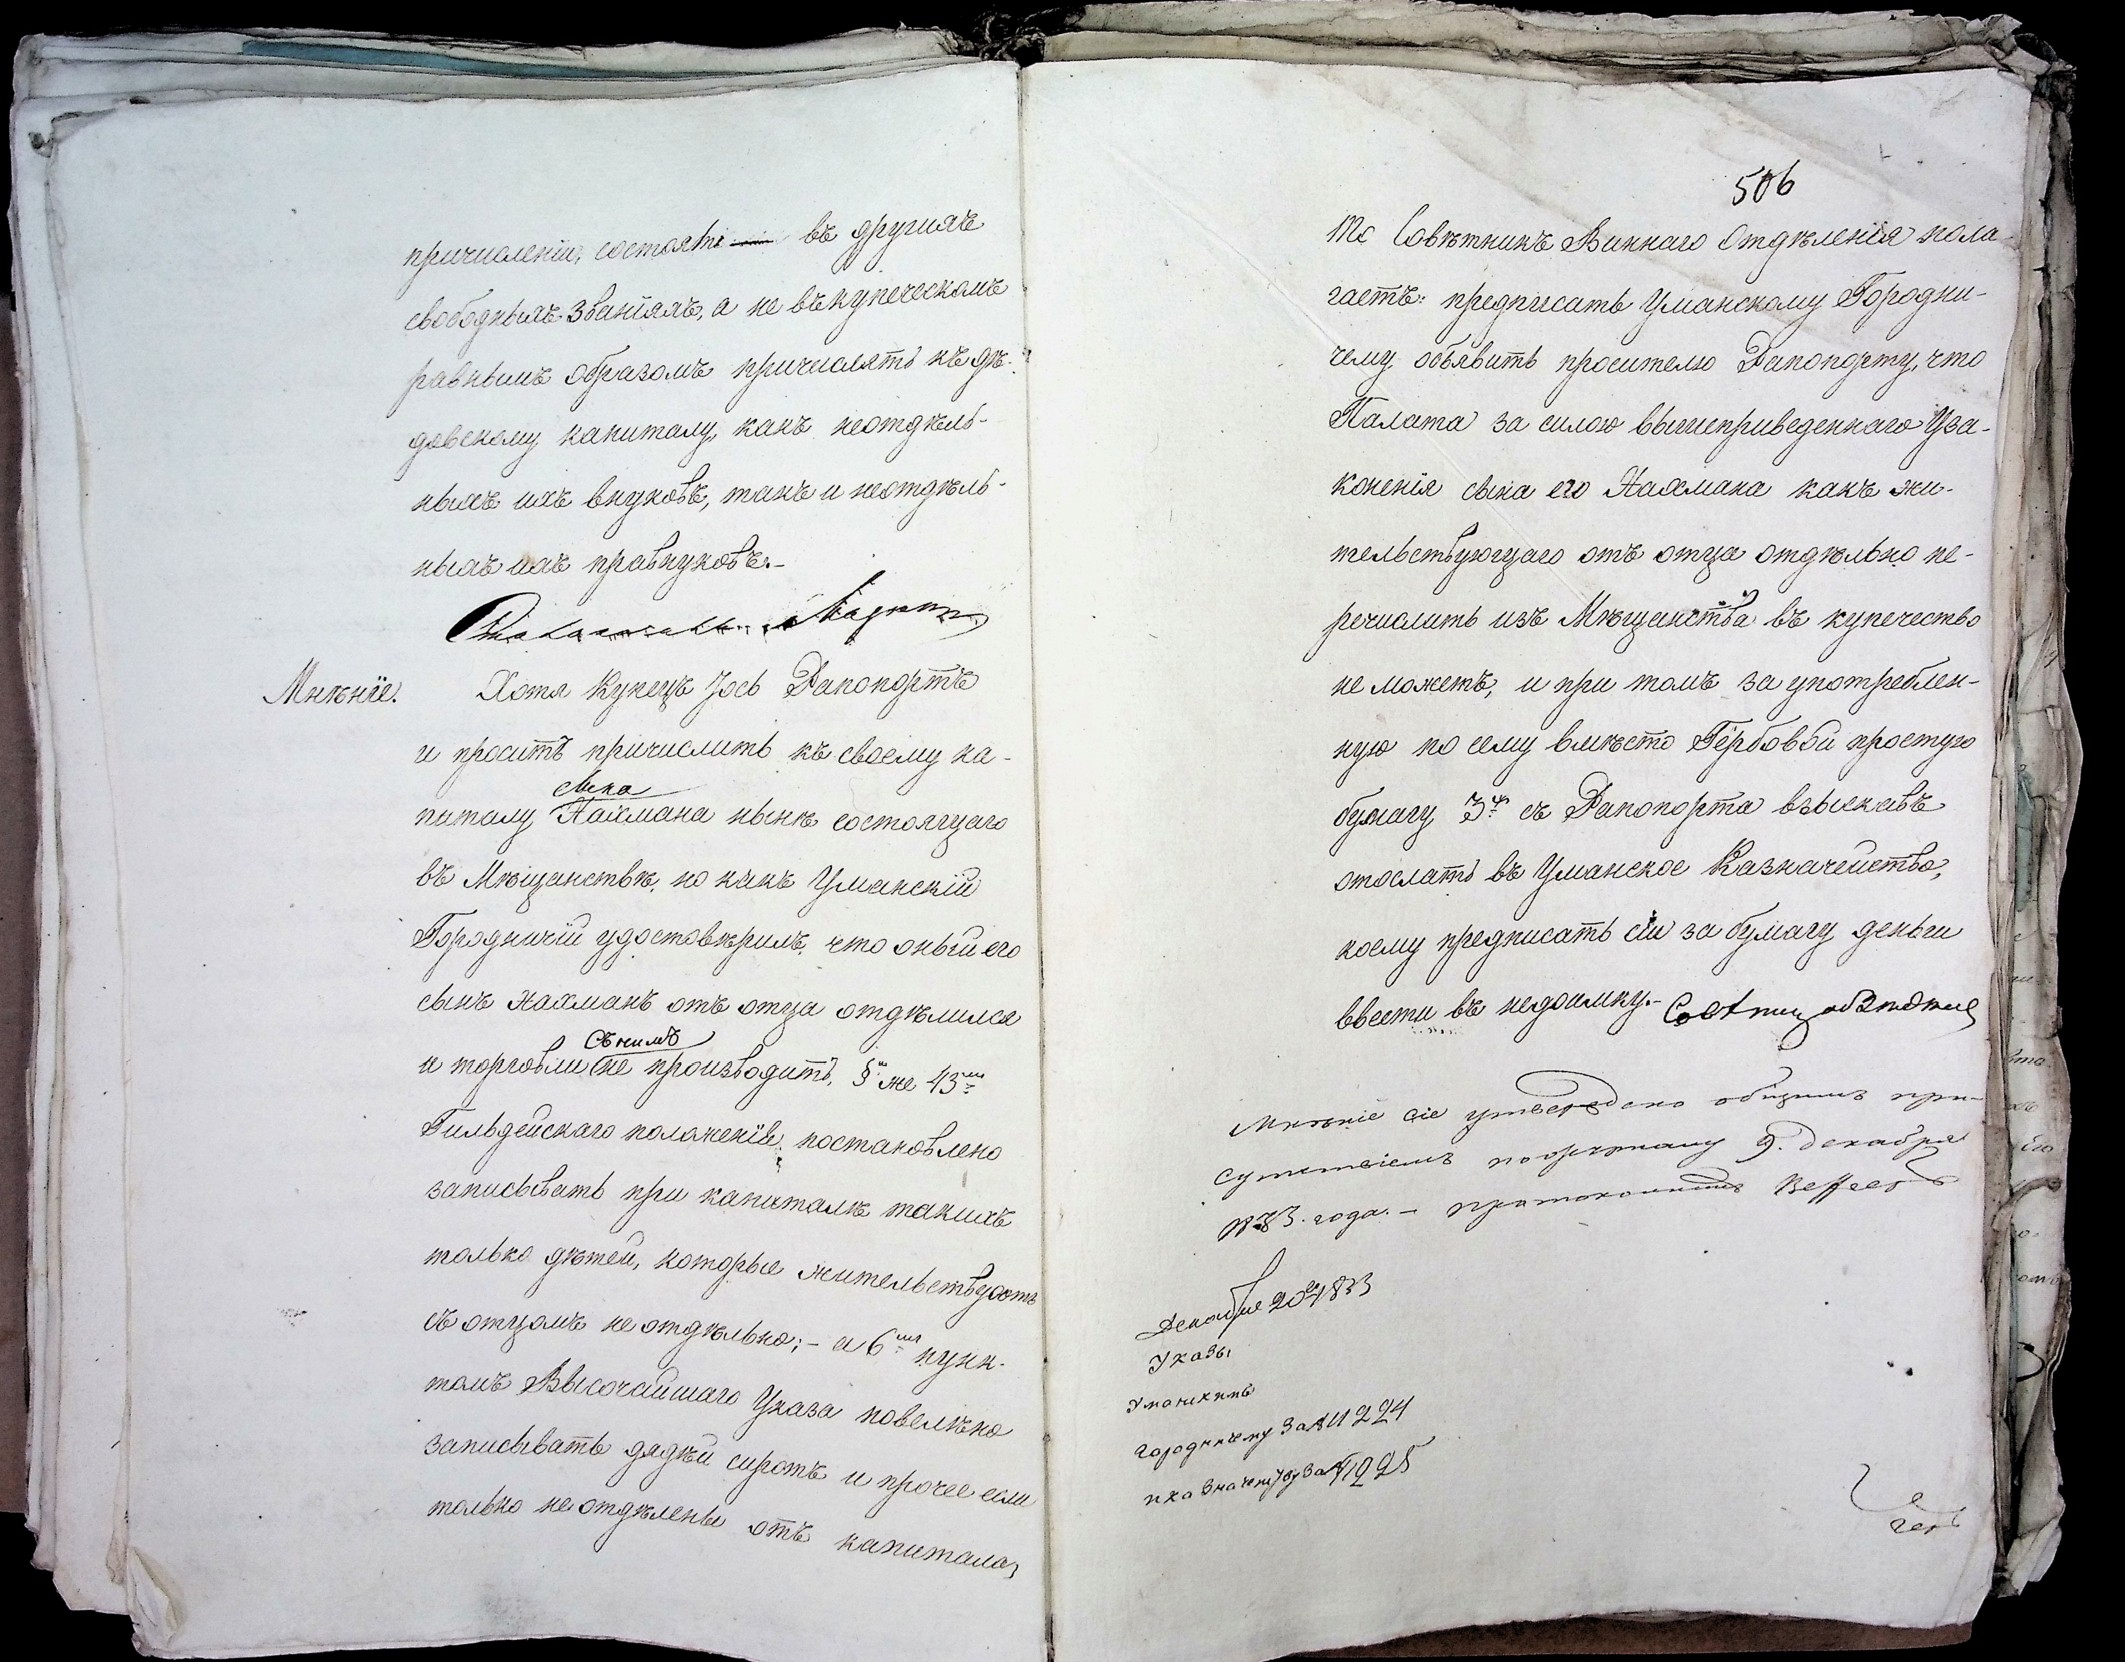 причисленiи, состоять въ другихъ
свободныхъ званiяхъ, а не въ купеческомъ
равнымъ образомъ причислять къ дѣ-
довскому капиталу, какъ неотдѣль-
ныхъ ихъ внуковъ, такъ и неотдѣль-
ныхъ ихъ правнуковъ.-
Мнѣнiе. Хотя Купецъ Iось Рапопортъ
и проситъ причислить къ своему ка-
сына
питалу Нахмана нынѣ состоящаго
въ Мѣщанствѣ, но какъ Уманскiй
Городничiй удостовѣрилъ, что оный его
сынъ Нахманъ отъ отца отдѣлился
съ нимъ
и торговли не производитъ, § же 43мъ
Гильдейскаго положенiя постановлено
записывать при капиталѣ такихъ
только дѣтей, которые жительствуютъ
съ отцомъ не отдѣльно; - а 6мъ пунк-
томъ Высочайшаго Указа повелѣно
записывать дядѣй сиротъ и прочее если
только не отдѣлены отъ капитала,
506
То Совѣтникъ Виннаго Отдѣленiя пола-
гаетъ: предписать Уманскому Городни-
чему объявить просителю Рапопорту, что
Палата за силою вышеприведеннаго Уза-
коненiя сына его Нахмана какъ жи-
тельствующаго отъ отца отдѣльно пе-
речислить изъ Мѣщанства въ купечество
не можетъ, и при томъ за употреблен-
ную по сему вмѣсто Гербовой простую
бумагу съ Рапопорта взыскавъ
отослать въ Уманское Казначейство,
коему предписать сiи за бумагу деньги
ввести въ недоимку.-
Мнѣнiе сiе утверждено общимъ при-
сутствiемъ по журналу 9. декабря
1833. года. -
Декабря 20 1833
Указы
Уманскимъ
Городничему за № 11224
и казначейству за № 11225